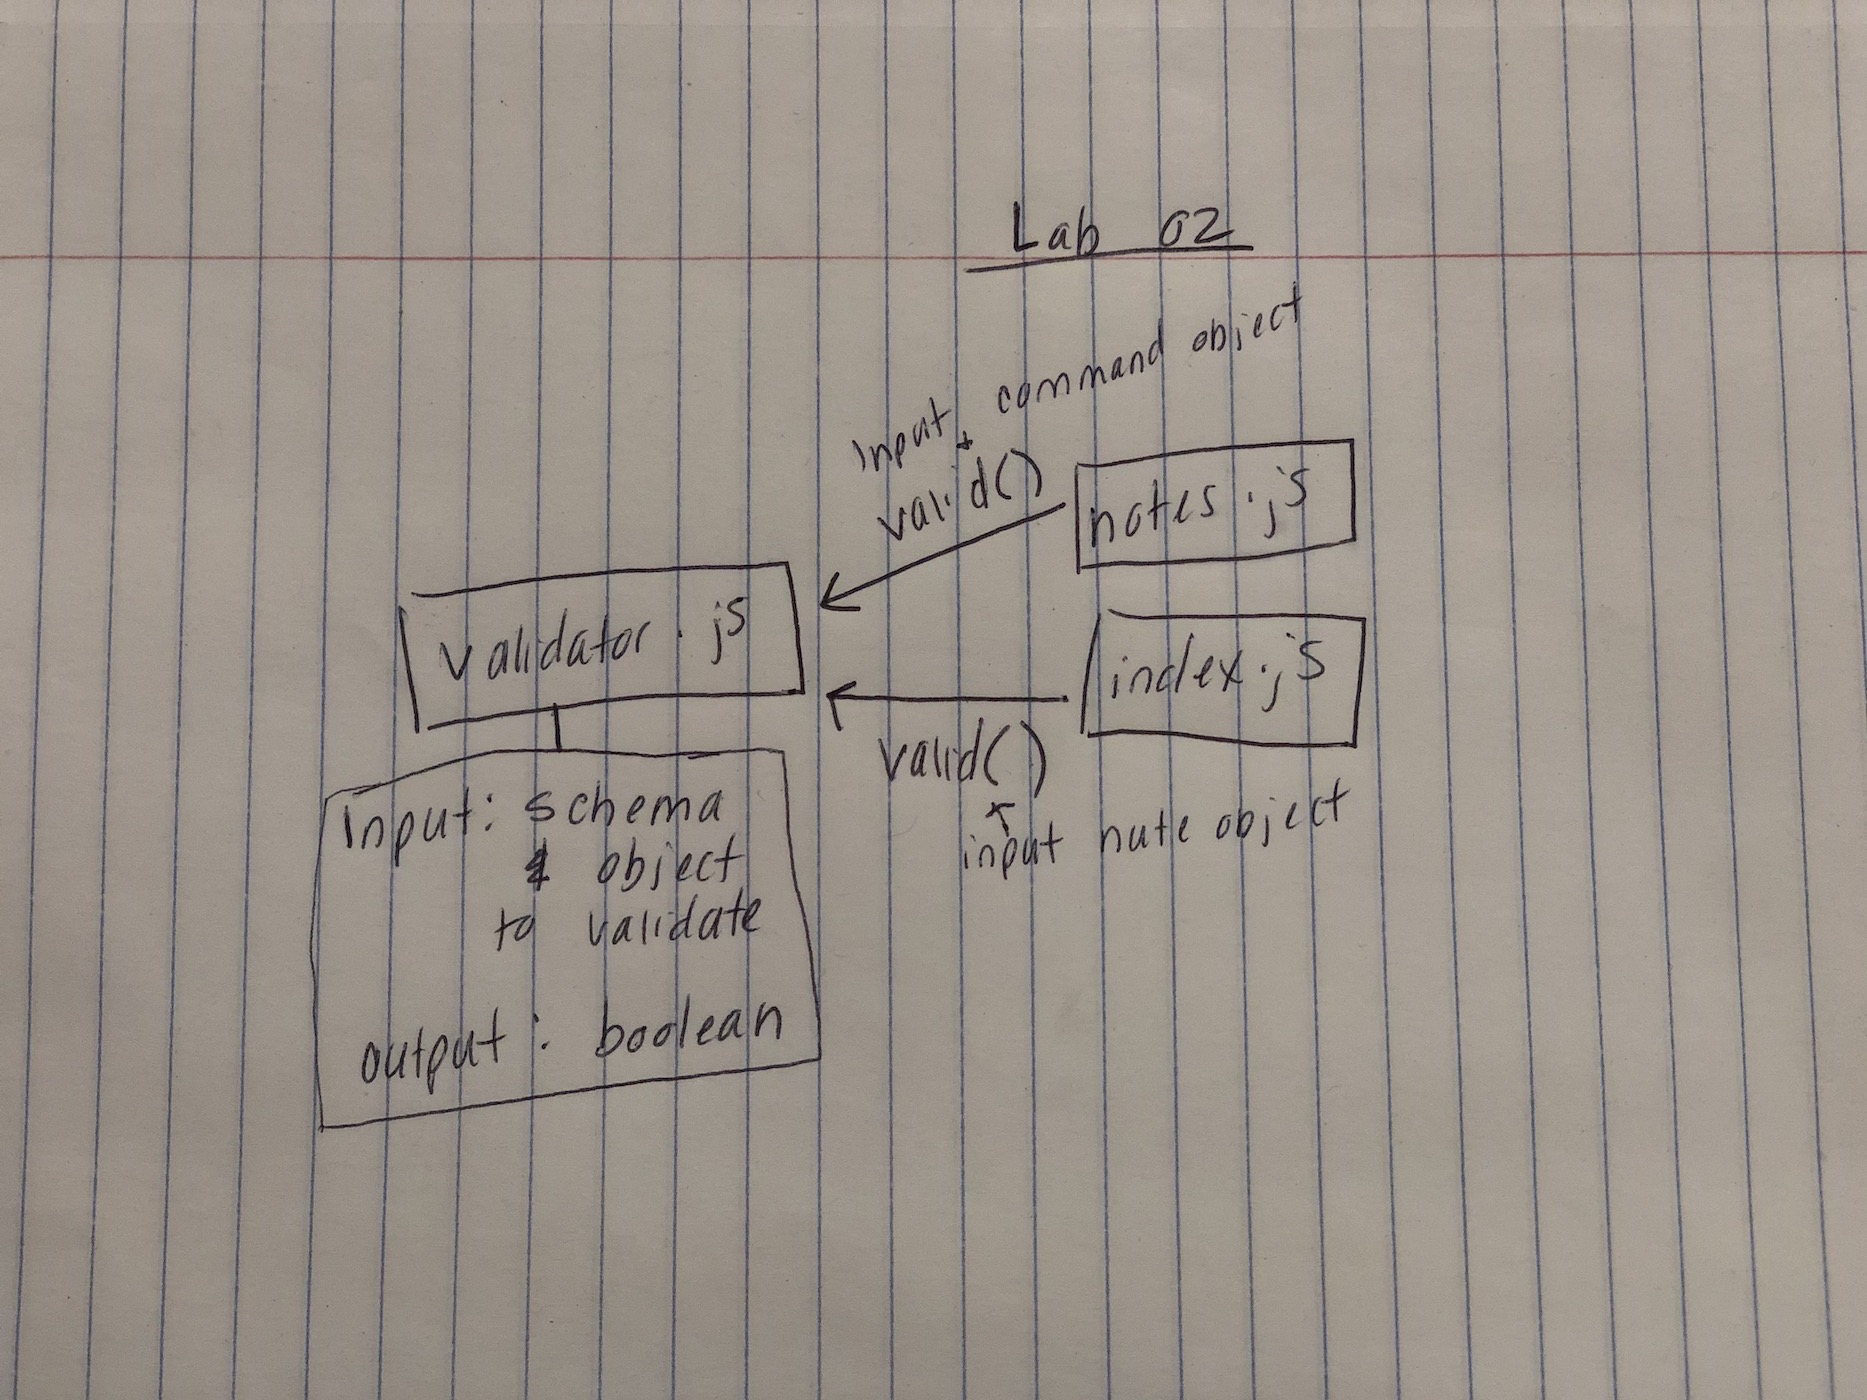 Lab 02
Input command object
valid()
notes.js
validator.js
index.js
valid()
input note object
Input: schema
& object
to validate
output: boolean